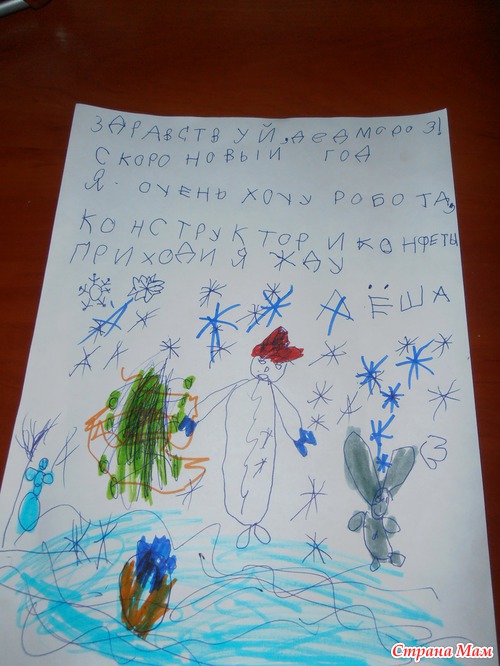 ЗДРАВСТВУЙ, ДЕДМОРОЗ!
СКОРО НОВЫЙ ГОД
Я ОЧЕНЬ ХОЧУ РОБОТА,
КОНСТРУКТОР И КОНФЕТЫ
ПРИХОДИ Я ЖДУ
ЛЁША
Страна Мам